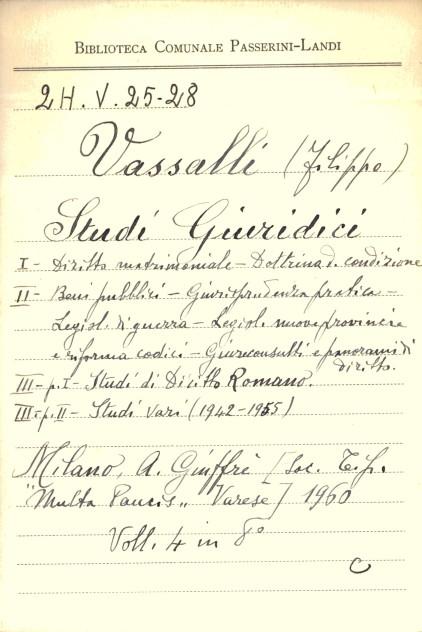 BIBLIOTECA COMUNALE PASSERINI-LANDI
2 H. V. 25-28
Vassalli (Filippo)
Studi Giuridici
I - Diritto matrimoniale - Dottrina d. condizione
II - Beni pubblici - Giurisprudenza pratica -
Legisl. di guerra - Legisl. nuove provincie
e riforma codici - Giureconsulti e panorami di
diritto.
III - p. I - Studi di Diritto Romano.
III - p. II - Studi vari (1942-1955)
Milano, A. Giuffrè [Soc. Tip.
"Multa Paucis" Varese] 1960
Voll. 4 in 8°
C